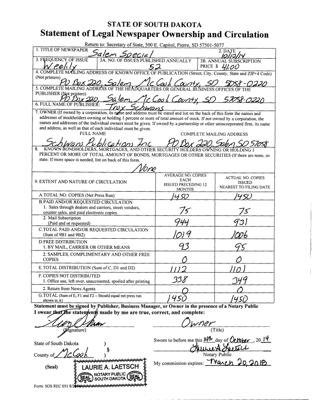 STATE OF SOUTH DAKOTA
Statement of Legal Newspaper Ownership and Circulation
Return to: Secretary of State, 500 E. Capitol, Pierre, SD 57501-5077
1. TITLE OF NEWSPAPER Salem Special
2. DATE 10/12/14
3. FREQUENCY OF ISSUE Weekly
3A. NO. OF ISSUES PUBLISHED ANNUALLY 52
3B. ANNUAL SUBSCRIPTION PRICE $ 41.00
4. COMPLETE MAILING ADDRESS OF KNOWN OFFICE OF PUBLICATION (Street, City, County, State and ZIP+4 Code) (Not printers)
PO Box 220, Salem, McCook County, SD 57058-0220
5. COMPLETE MAILING ADDRESS OF THE HEADQUARTERS OR GENERAL BUSINESS OFFICES OF THE PUBLISHER (Not printers)
PO Box 220, Salem, McCook County, SD 57058-0220
6. FULL NAME OF PUBLISHER: Troy Schwans
7. OWNER (If owned by a corporation, its name and address must be stated and also on the back of this form the names and
addresses of stockholders owning or holding 1 percent or more of total amount of stock. If not owned by a corporation, the
names and addresses of the individual owners must be given. If owned by a partnership or other unincorporated firm, its name
and address, as well as that of each individual must be given.
FULL NAME
COMPLETE MAILING ADDRESS
Schwans Publications Inc
PO Box 220, Salem SD 57058
8. KNOWN BONDHOLDERS, MORTGAGES, AND OTHER SECURITY HOLDERS OWNING OR HOLDING 1
PERCENT OR MORE OF TOTAL AMOUNT OF BONDS, MORTGAGES OR OTHER SECURITIES (If there are none, so
state. If more space is needed, list on back of this form.)
None
9. EXTENT AND NATURE OF CIRCULATION
AVERAGE NO. COPIES EACH ISSUED PRECEDING 12 MONTHS
ACTUAL NO. COPIES ISSUED NEAREST TO FILING DATE
A. TOTAL NO. COPIES (Net Press Run) 1450 1450
B. PAID AND/OR REQUESTED CIRCULATION
1. Sales through dealers and carriers, street vendors, counter sales, and paid electronic copies. 75 75
2. Mail Subscription (Paid and or requested) 944 931
C. TOTAL PAID AND/OR REQUESTED CIRCULATION (Sum of 9B1 and 9B2) 1019 1006
D. FREE DISTRIBUTION
1. BY MAIL, CARRIER OR OTHER MEANS 93 95
2. SAMPLES, COMPLIMENTARY AND OTHER FREE COPIES 0 0
E. TOTAL DISTRIBUTION (Sum of C, D1 and D2) 1112 1101
F. COPIES NOT DISTRIBUTED
1. Office use, left over, unaccounted, spoiled after printing 338 349
2. Return from News Agents 0 0
G. TOTAL (Sum of E, F1 and F2 - Should equal net press run shown in A) 1450 1450
Statement must be signed by Publisher, Business Manager, or Owner in the presence of a Notary Public
I swear that the statements made by me are true, correct, and complete:
Owner
(Signature) (Title)
State of South Dakota )
County of McCook )
Sworn to before me this day of October, 2014
Notary Public
(Seal)
LAURIE A. LAETSCH
NOTARY PUBLIC
SOUTH DAKOTA
SEAL
My commission expires: March 20, 2018